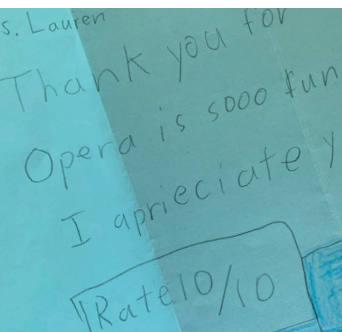 s. Lauren
Thank you for
Opera is sooo fun
I aprieciate y
Rate 10/10